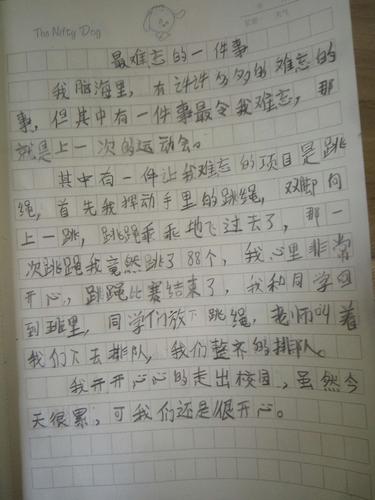 The Nifty Dog
最难忘的一件事
我脑海里,有许许多多的难忘的
事,但其中有一件事最令我难忘,那
就是上一次的运动会。
其中有一件让我难忘的项目是跳
绳,首先我挥动手里的跳绳,双脚向
上一跳,跳绳乖乖地飞过去了,那一
次跳跳我竟然跳了88个,我心里非常
开心,跳绳比赛结束了,我和同学回
到班里,同学们放下跳绳,老师叫着
我们下去排队,我们整齐的排队。
我开开心心的走出校园,虽然今
天很累,可我们还是很开心。